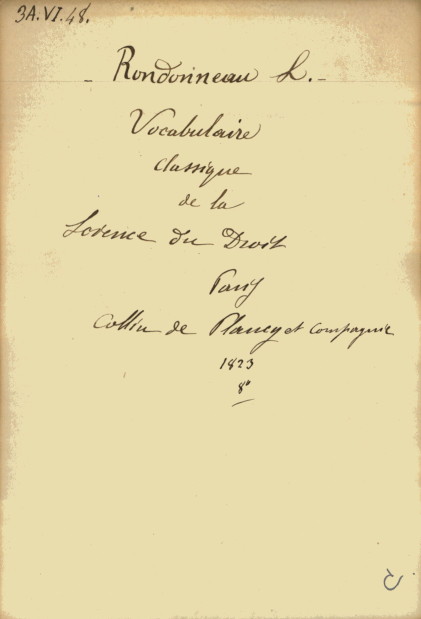 3A.VI.48.
- Rondonneau L. -
Vocabulaire
classique
de la
Science du Droit
Paris
Collin de Plancy et compagnie
1823
8°